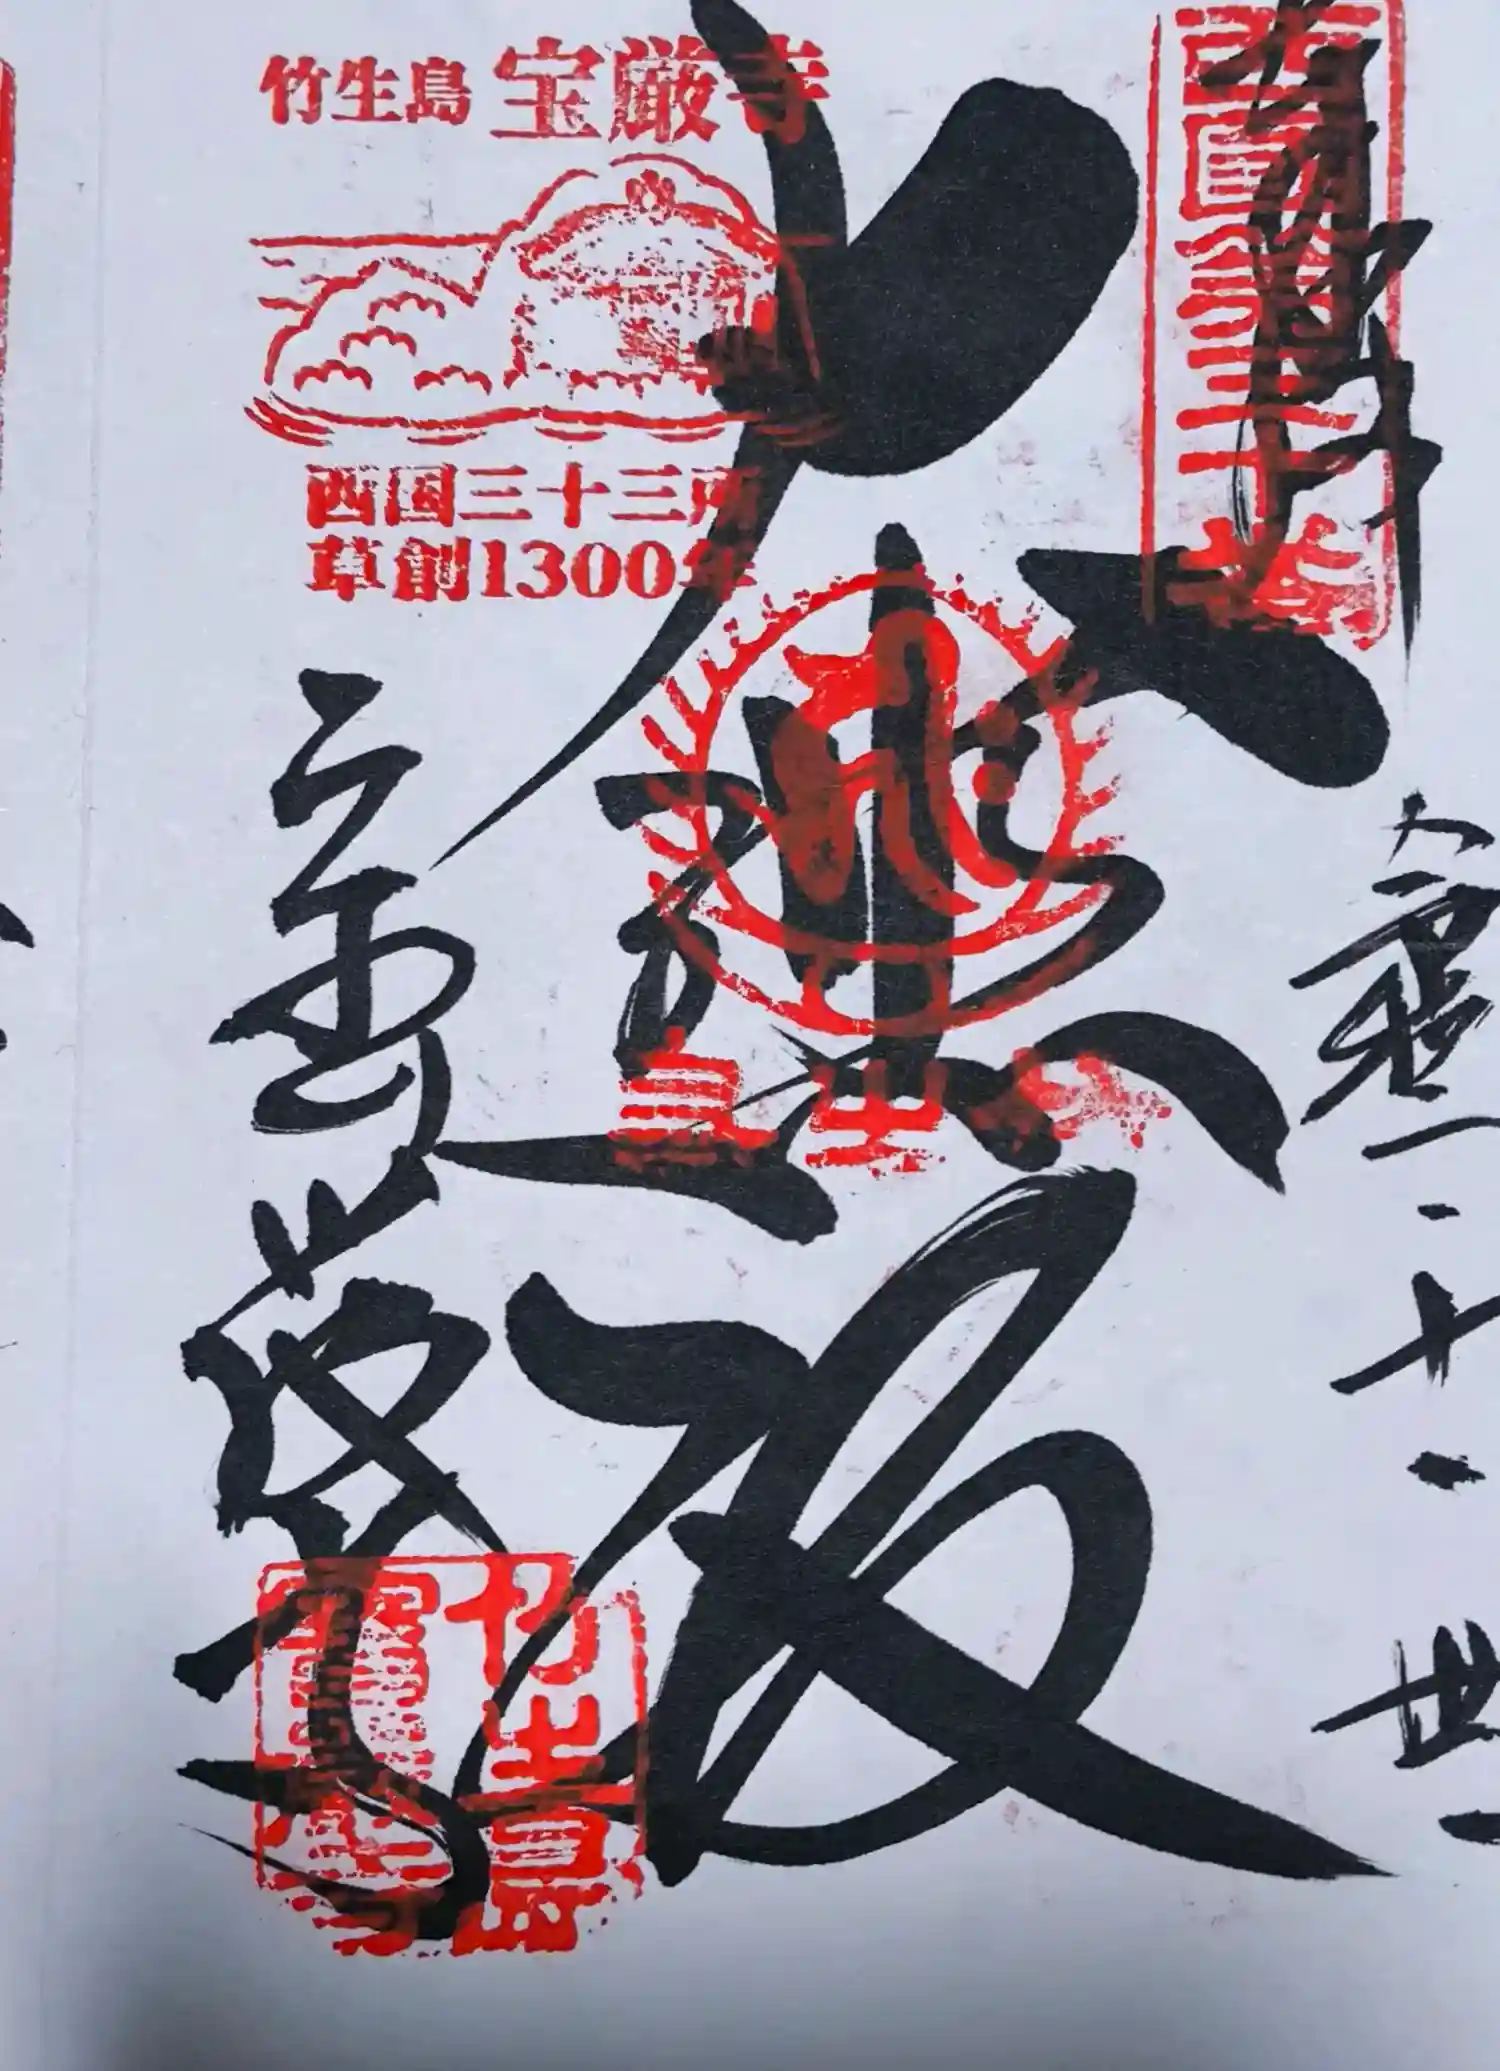 奉拝
西國第三十番
大悲殿
宝厳寺
竹生島 宝厳寺
西国三十三所
草創1300年
竹生島
寶嚴寺